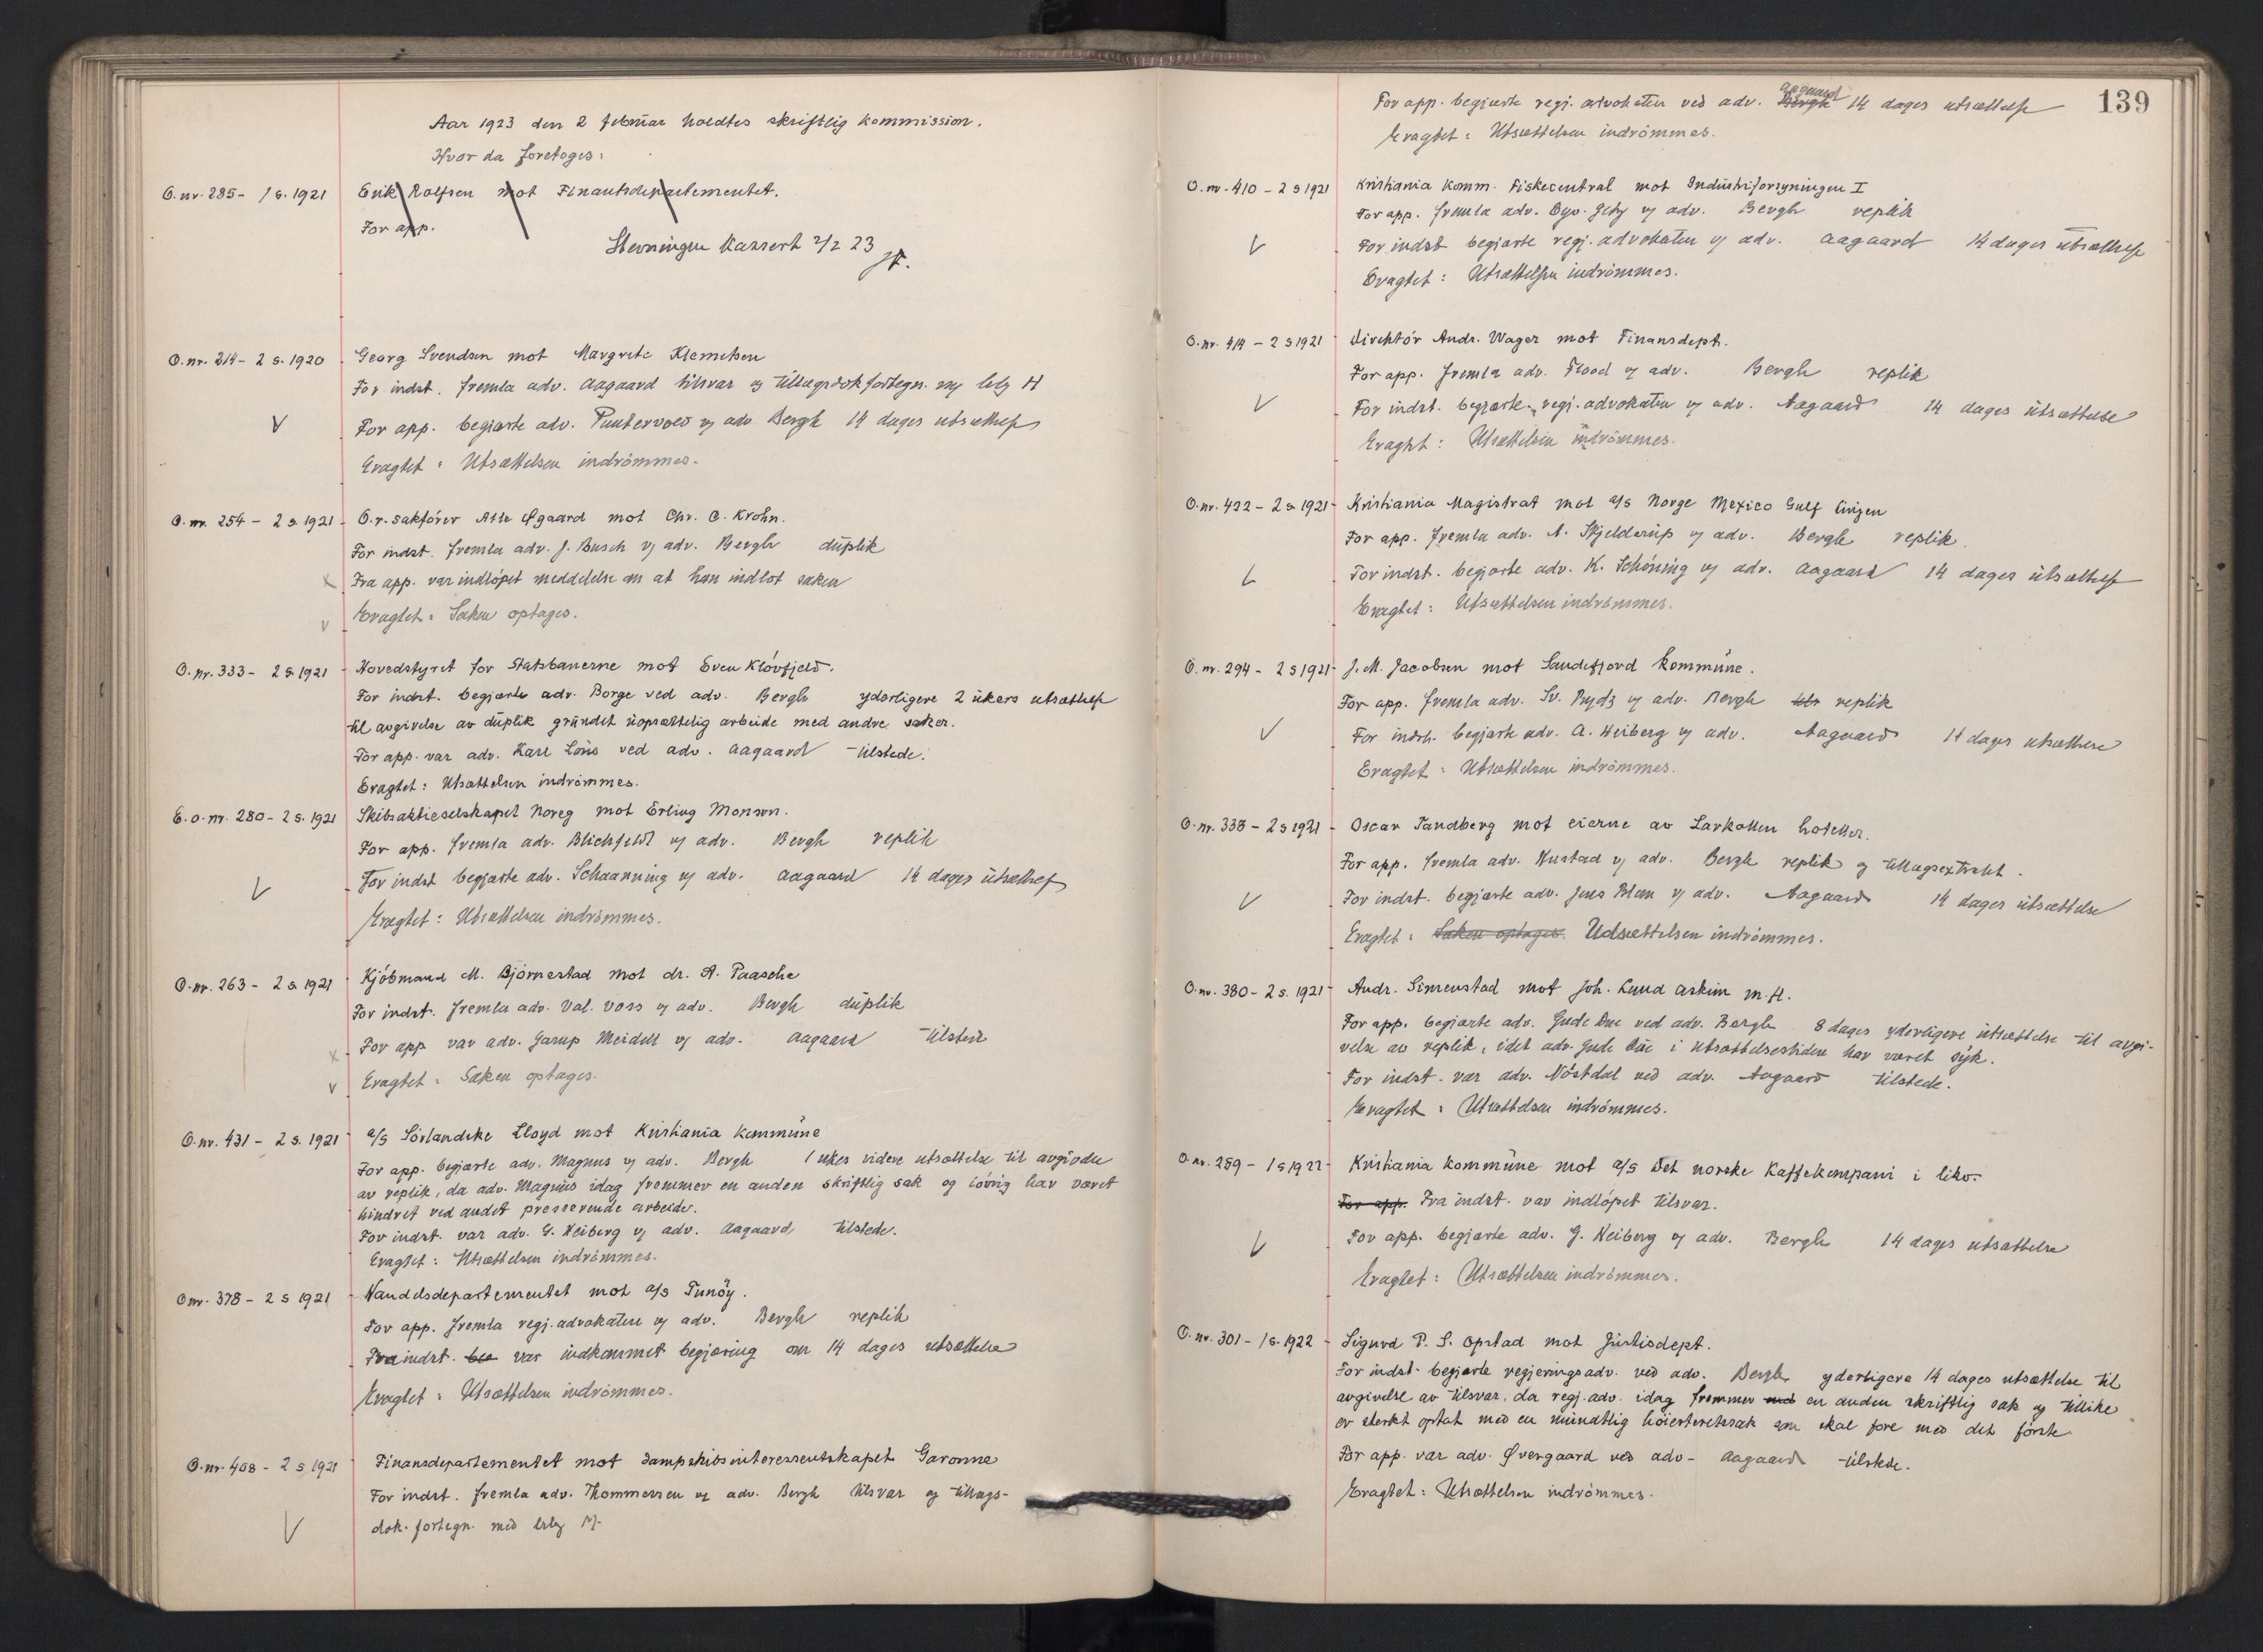 Aar 1923 den 2 februar holdtes skriftlig kommission.
Hvor da foretoges:
O.nr. 285 - 1 s. 1921 Erik Rolfsen mot Finantsdepartementet.
For app.
Stevningen kassert 2/2 23
O.nr. 214 - 2 s. 1920 Georg Svendsen mot Margrete Klemetsen
For indst. fremla adv. Aagaard tilsvar og tillægsdokfortegn. m/ bilag H
V For app. begjærte adv. Puntervold v/ adv Bergh 14 dages utsættelse
Eragtet: Utsættelsen indrömmes.
O.nr. 254 - 2 s. 1921 O.r.sakförer Atle Øgaard mot Chr. C. Krohn.
For indst. fremla adv. J. Busch v/ adv. Bergh duplik
x Fra app. var indlöpet meddelelse om at han indlot saken
v Eragtet: Saken optages.
O.nr. 333 - 2 s. 1921 Hovedstyret for Statsbanerne mot Even Klövfjeld.
For indst. begjærte adv. Borge ved adv. Bergh yderligere 2 ukers utsættelse
til avgivelse av duplik grundet uopsættelig arbeide med andre saker.
For app. var adv. Karl Lous ved adv. Aagaard tilstede.
Eragtet: Utsættelsen indrömmes.
E.o.nr. 280 - 2 s. 1921 Skibsaktieselskapet Noreg mot Erling Monsen.
For app. fremla adv. Blichfeldt v/ adv. Bergh replik
V For indst begjærte adv. Schaanning v/ adv. Aagaard 14 dages utsættelse
Eragtet: Utsættelsen indrömmes.
O.nr. 263 - 2 s 1921 Kjöbmand M. Björnestad mot dr. A. Paasche
For indst. fremla adv. Val. Voss v/ adv. Bergh duplik
x For app var adv. Garup Meidell v/ adv. Aagaard tilstede
v Eragtet: Saken optages.
O.nr. 431 - 2 s. 1921 a/s Sörlandske Lloyd mot Kristiania kommune
For app. begjærte adv. Magnus v/ adv. Bergh 1 ukes videre utsættelse til avgivelse
av replik, da adv. Magnus idag fremmer en anden skriftlig sak og iövrig har været
hindret ved andet presserende arbeide.
For indst. var adv. G. Heiberg v/ adv. Aagaard tilstede.
Eragtet: Utsættelsen indrömmes.
O.nr. 378 - 2 s 1921 Handelsdepartementet mot a/s Tunöy.
For app. fremla regj.advokaten v/ adv. Bergh replik
Fra indst. var indkommet begjæring om 14 dages utsættelse
Eragtet: Utsættelsen indrömmes.
O.nr. 408 - 2 s 1921 Finansdepartementet mot dampskibsinteressentskapet Garonne
For indst. fremla adv. Thommessen v/ adv. Bergh tilsvar og tillægs-
V dok.fortegn. med bilag
139
For app. begjærte regj.advokaten ved adv. Bergh Aagaard 14 dages utsættelse
Eragtet: Utsættelsen indrömmes.
O.nr. 410 - 2 s 1921 Kristiania komm. Fiskecentral mot Industriforsyningen I
For app. fremla adv. v/ adv. Bergh replik
V For indst begjærte regj.advokaten v/ adv. Aagaard 14 dages utsættelse
Eragtet: Utsættelsen indrömmes.
O.nr. 414 - 2 s 1921 Direktör Andr. Wager mot Finansdept.
For app. fremla adv. Flood v/ adv. Bergh replik
V For indst. begjærte regj.advokaten v/ adv. Aagaard 14 dages utsættelse
Eragtet: Utsættelsen indrömmes.
O.nr. 422 - 2 s 1921 Kristiania Magistrat mot a/s Norge Mexico Gulf Linjen
For app. fremla adv. A. Skjelderup v/ adv. Bergh replik.
V For indst. begjærte adv. K. Schöning v/ adv. Aagaard 14 dages utsættelse
Eragtet: Utsættelsen indrömmes.
O.nr. 294 - 2 s 1921 J. M. Jacobsen mot Sandefjord kommune.
For app. fremla adv. Sv. Ryds v/ adv. Bergh replik
V For indst. begjærte adv. A. Heiberg v/ adv. Aagaard 14 dages utsættelse
Eragtet: Utsættelsen indrömmes.
O.nr. 338 - 2 s 1921 Oscar Tandberg mot eierne av Larkollen hoteller.
For app. fremla adv. Hustad v/ adv. Bergh replik og tillægsextrakt.
V For indst. begjærte adv. Jens Blom v/ adv. Aagaard 14 dages utsættelse
Eragtet: Saken optages. Udsættelsen indrömmes.
O.nr. 380 - 2 s. 1921 Andr. Simenstad mot Joh. Lund Askim m.fl.
For app. begjærte adv. Gude Due ved adv. Bergh 8 dages yderligere utsættelse til avgi-
velse av replik, idet adv. Gude Due i utsættelsestiden har været syk.
For indst. var adv. Nöstdal ved adv. Aagaard tilstede.
Eragtet: Utsættelsen indrömmes.
O.nr. 259 - 1 s 1922 Kristiania kommune mot a/s Det norske Kaffekompani i likv.
For app. Fra indst. var indlöpet tilsvar.
V For app. begjærte adv. G. Heiberg v/ adv. Bergh 14 dages utsættelse
Eragtet: Utsættelsen indrömmes.
O.nr. 301 - 1 s. 1922 Sigurd P. S. Opstad mot Justisdept.
For indst. begjærte regjeringsadv. ved adv. Bergh yderligere 14 dages utsættelse til
avgivelse av tilsvar, da regj.adv. idag fremmer en anden skriftlig sak og tillike
er sterkt optat med en mundtlig höiesteretssak som skal fore med det förste.
For app. var adv. Øvergaard ved adv. Aagaard tilstede.
Eragtet: Utsættelsen indrömmes.